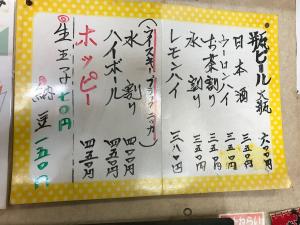 瓶ビール 大瓶 六〇〇円
日本酒 三五〇円
ウーロンハイ 三五〇円
お茶割り 三五〇円
水割り 三五〇円
レモンハイ 三八〇円
(ウイスキーブラックニッカ)
水割り 四〇〇円
ハイボール 四五〇円
ホッピー 四五〇円
生玉子 七〇円
納豆 一五〇円